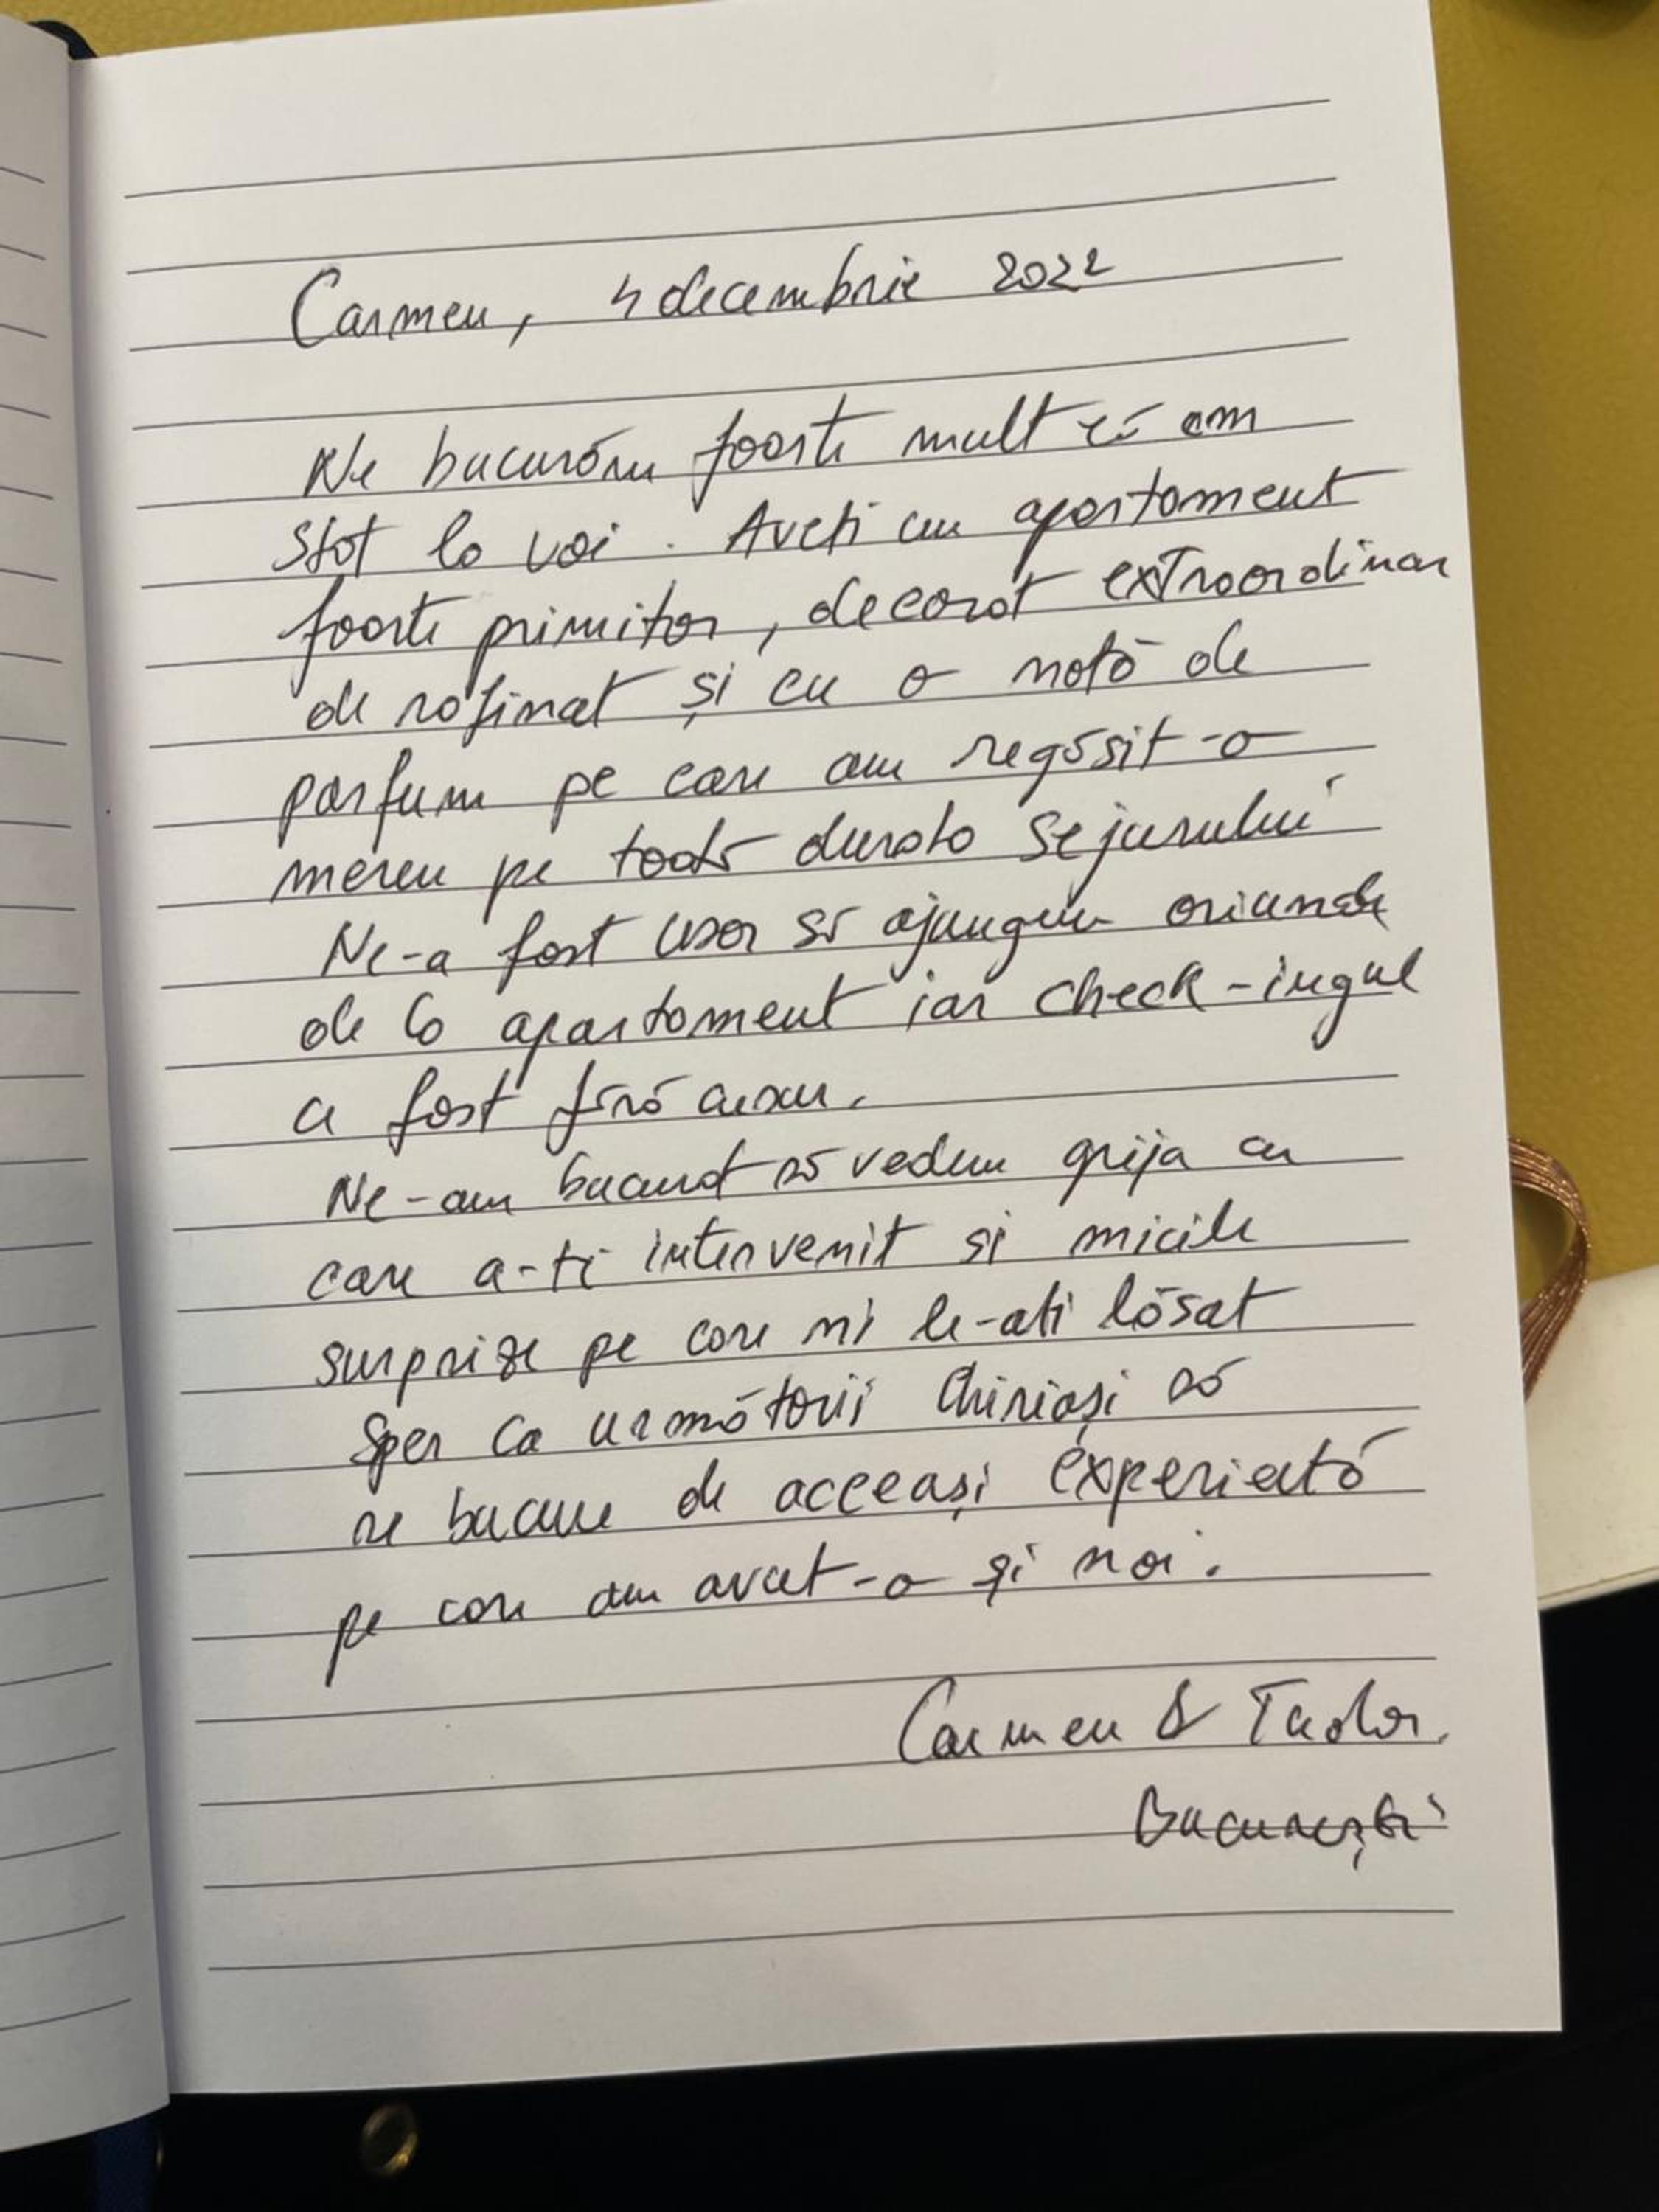 Carmen, 4 decembrie 2022
Ne bucurăm foarte mult că am
stat la voi. Aveti un apartament
foarte primitor, decorat extraordinar
de rafinat și cu o notă de
parfum pe care am regăsit-o
mereu pe toată durata sejurului
Ne-a fost usor să ajungem oriunde
de la apartament iar check-ingul
a fost fără
Ne-am bucurat să vedem grija cu
care a-ti intervenit si micile
surprize pe care ni le-ati lăsat
Sper ca următorii chiriași să
se bucure de aceeași experiență
pe care am avut-o și noi.
Carmen & Tudor.
București